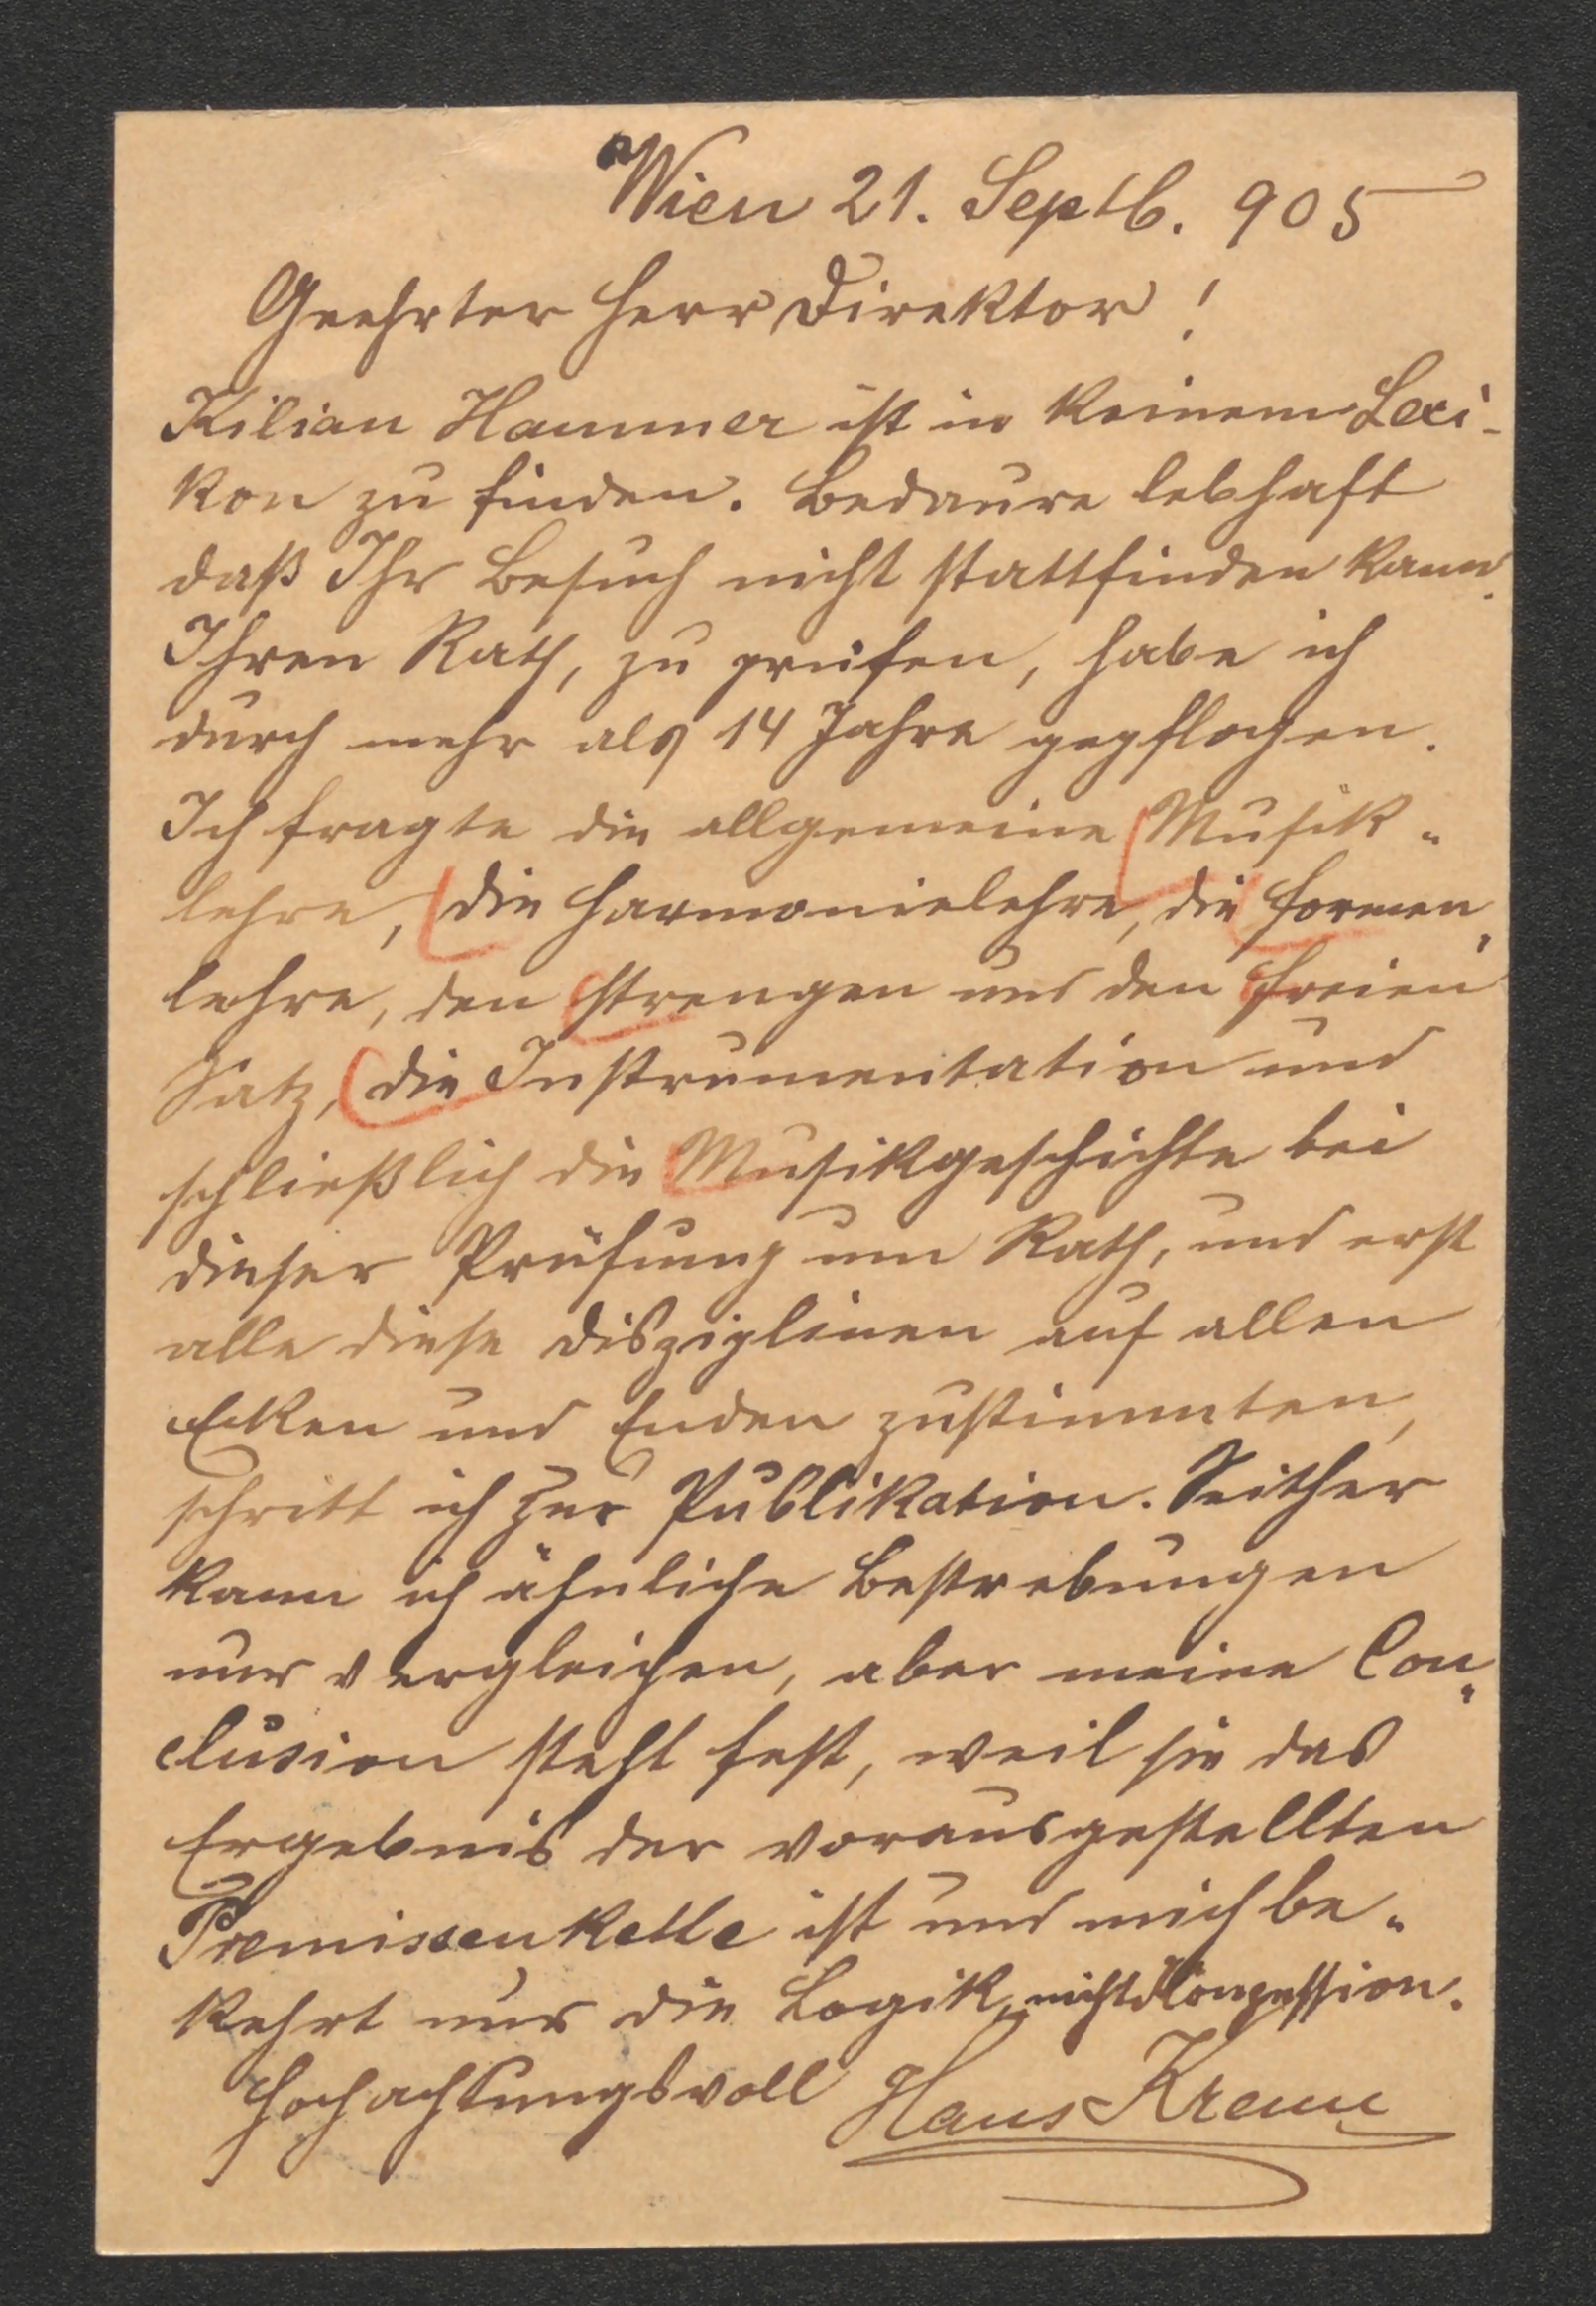 Wien 21. Septb. 905
Geehrter Herr Direktor!
Kilian Hammer ist in keinem Lexi-
kon zu finden. Bedaure lebhaft
daß Ihr Besuch nicht stattfinden kann.
Ihren Rath, zu prüfen, habe ich
durch mehr als 14 Jahre gepflogen.
Ich fragte die allgemeine Musik-
lehre, die Harmonielehre, die Formen-
lehre, den strengen und den freien
Satz, die Instrumentation und
schließlich die Musikgeschichte bei
dieser Prüfung um Rath, und erst
alle diese Disziplinen auf allen
Ecken und Enden zustimmten,
schritt ich zur Publikation. Seither
kann ich ähnliche Bestrebungen
nur vergleichen, aber meine Con-
clusion steht fest, weil sie das
Ergebnis der vorausgestellten
Premissenkette ist und mich be-
kehrt nur die Logik, nicht Konzession.
Hochachtungsvoll Hans Krenn